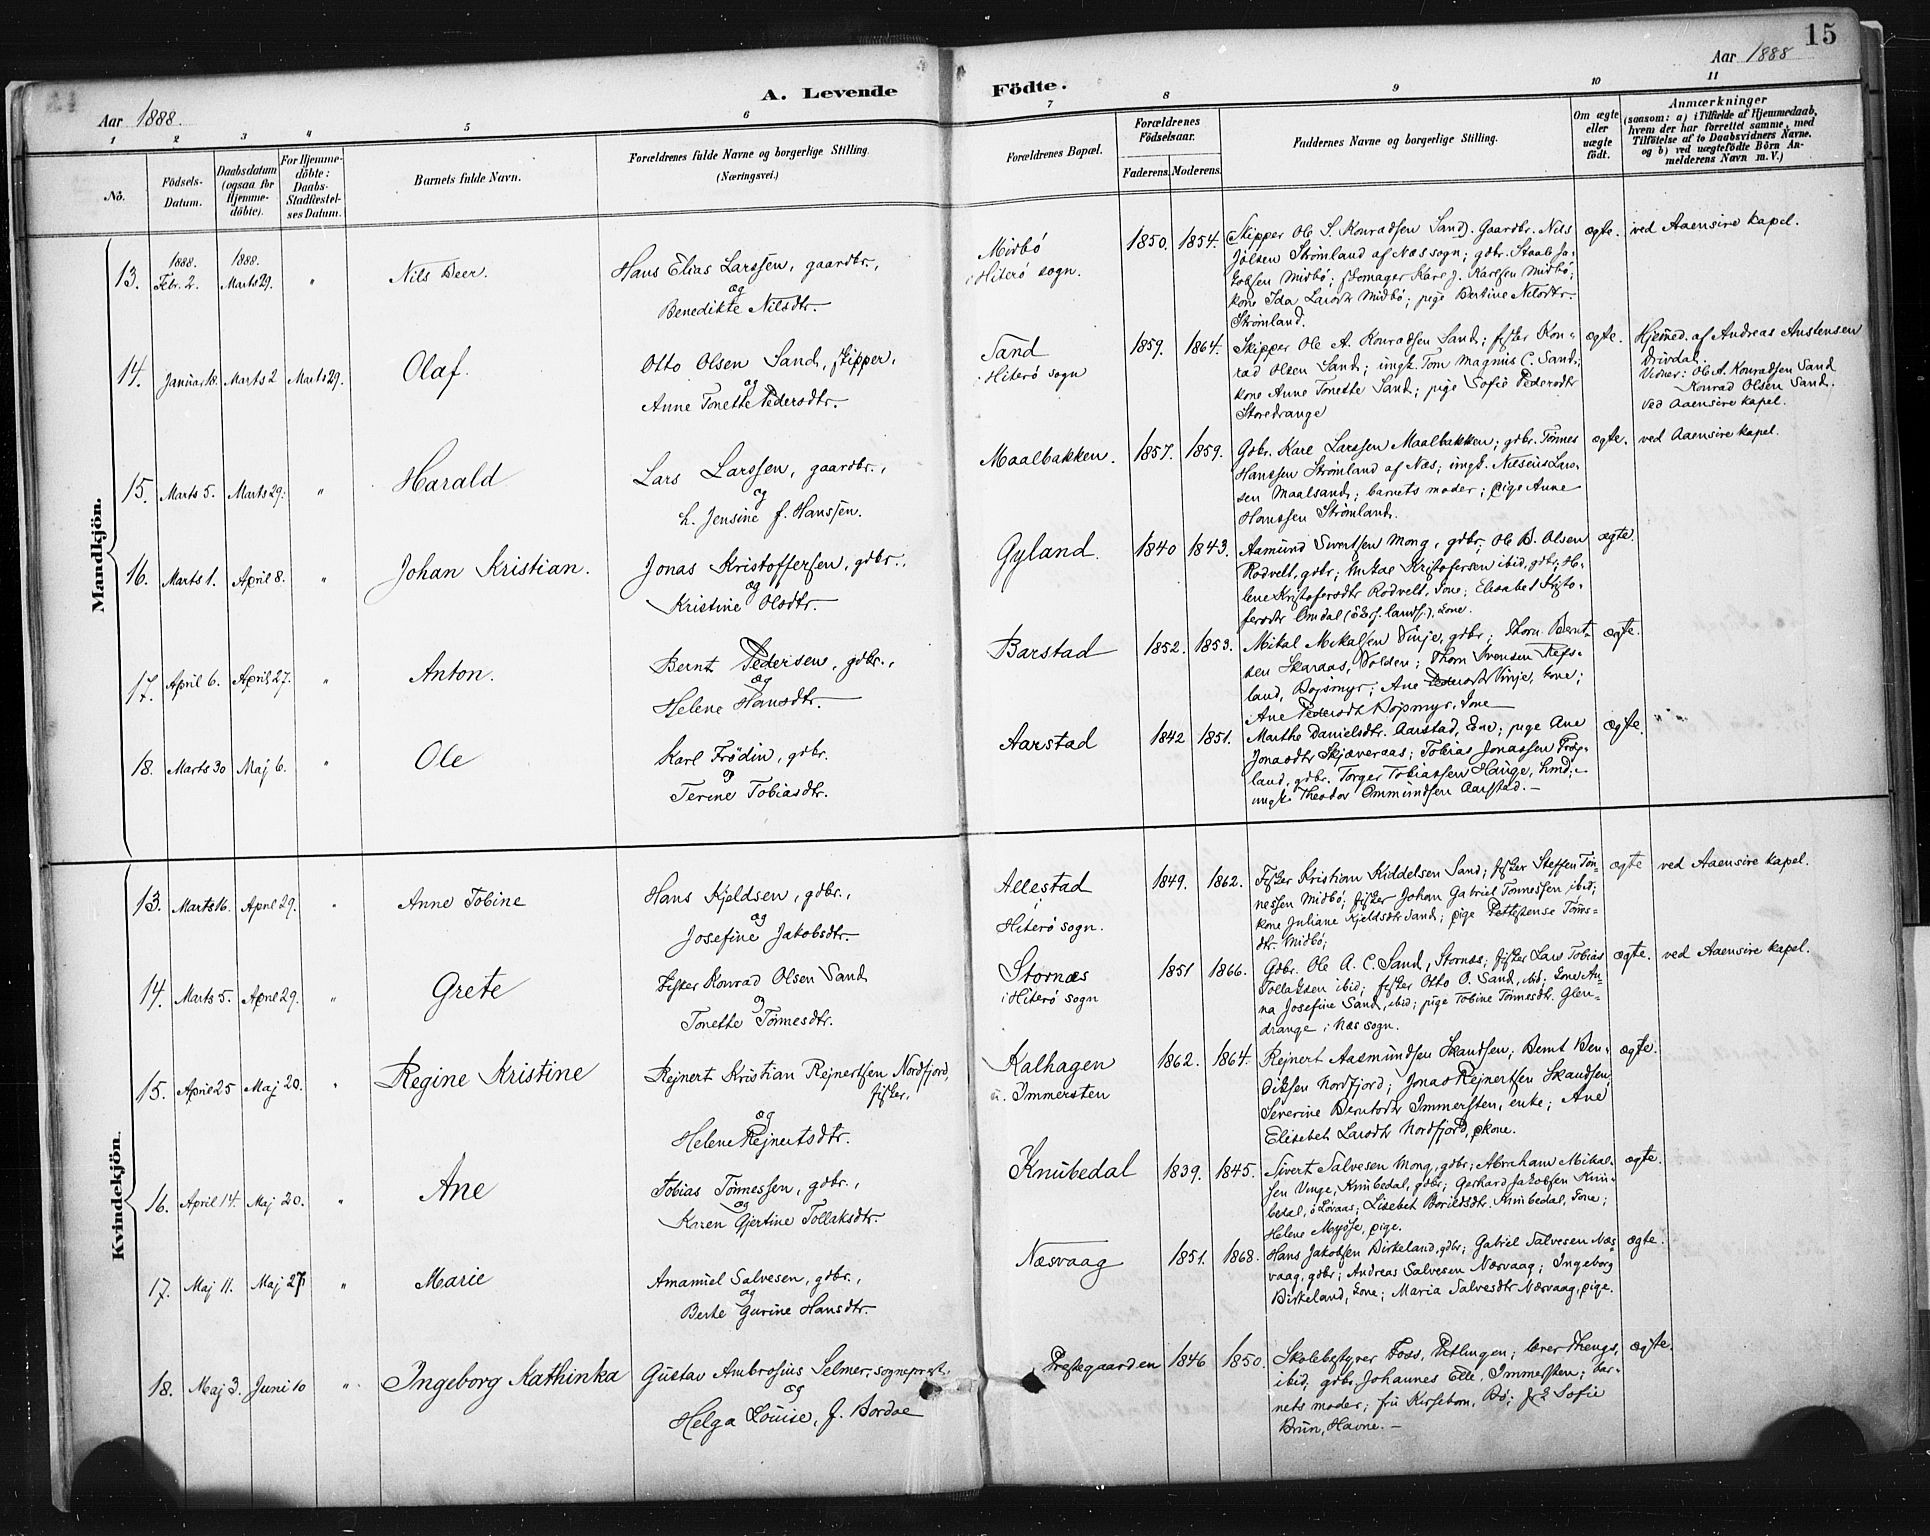 15
Aar 1888.
A. Levende
Födte.
Aar 1888
1 2 3 4 5 6 7 8 9 10 11
No.
Födsels-
Datum.
Daabsdatum
(ogsaa for
Hjemme-
döbte).
For Hjemme-
döbte:
Daabs-
Stadfestel-
ses Datum.
Barnets fulde Navn.
Forældrenes fulde Navne og borgerlige Stilling
(Næringsvei.)
Forældrenes Bopæl.
Forældrenes
Födselsaar.
Faderens. Moderens.
Faddernes Navne og borgerlige Stilling.
Om ægte
eller
uægte
født.
Anmærkninger
(saasom: a) i Tilfælde af Hjemmedaab,
hvem der har forrettet samme, med
Tilföielse af to Daabsvidners Navne.
og b) ved uægtefödte Börn An-
melderens Navn m. V.)
Mandkjön.
13. 1888. Febr. 2. 1888. Marts 29. " Nils Beer.
Hans Elias Larssen, gaardbr.,
og
Benedikte Nilsdtr.
Midbö
i Hiterö sogn.
1850. 1854.
Skipper Ole S. Konradsen Sand. Gaardbr. Nils
Strömland af Næs sogn; gdbr. Staale Ja-
kobsen Midbö; Karl J. Karlsen Midbö;
kone Ida Larsdtr Midbö; pige Bertine Nilsdtr.
Strömland.
ægte. ved Aaensire kapel.
14. Marts 2 Marts 29. Olaf.
Otto Olsen Sand, skipper,
og
Anne Tonette Pedersdtr.
Sand
i Hiterö sogn
1859. 1864.
Skipper Ole A. Konradsen Sand; fisker Kon-
rad Olsen Sand; ungk. Tom Magnus C. Sand;
kone Anne Tonette Sand; pige Sofie Pedersdtr
Storedrange
ægte.
Hjemmed. af Andreas Austensen
Drivdal.
Vidner: Ole A. Konradsen Sand
Konrad Olsen Sand.
Ved Aaensire kapel.
15. Marts 5. Marts 29. " Harald
Lars Larssen, gaardbr.,
og
h. Jensine f. Hanssen.
Maalbakken.
1857. 1859.
Gdbr. Kare Larssen Maalbakken; gdbr. Tönnes
Hanssen Strömland af Næs; ungk. Lars-
sen Maalsand; barnets moder; pige Anne
Hanssen Strömland.
ægte. ved Aaensire kapel.
16. Marts 1. April 8. " Johan Kristian.
Jonas Kristoffersen, gdbr.,
og
Kristine Olsdtr.
Gyland.
1840 1843.
Aamund Sivertsen Mong, gdbr; Ole B. Olsen
Rodvelt, gdbr; Mikal Kristofersen ibid, gdbr; He-
lene Kristofersdtr Rodvelt, kone; Elisabet Kristo-
fersdtr Omdal, kone.
ægte.
17. April 6. April 27. " Anton.
Bernt Pedersen, gdbr.,
og
Helene Hansdtr.
Barstad
1852. 1853.
Mikal Mikalsen Vinje, gdbr; Thorn. Bernt-
sen Skaraas, Volden; Thorn Svensen Refs-
land, Bojsmyr; Ane Pedersdtr Vinje, kone;
Ane Pedersdtr Bojsmyr, kone
ægte. "
18. Marts 30 Maj 6. " Ole
Karl Frödin, gdbr.
og
Terine Tobiasdtr.
Aarstad
1842 1851.
Marthe Danielsdtr. Aarstad, kone; pige Ane
Jonasdtr Skjæveraas; Tobias Jonassen Frøy-
land, gdbr. Torger Tobiassen Hauge, hmd;
ungk. Theodor Ommundsen Aarstad. —
ægte.
Kvindekjön.
13. Marts 16. April 29. Anne Tobine
Hans Kjeldsen, gdbr.,
og
Josefine Jakobsdtr.
Allestad
i
Hiterö sogn.
1849. 1862.
Fisker Kristian Kiddelsen Sand; fisker Steffen Tön-
nessen Midbö; fisker Johan Gabriel Tönnessen, ibid;
kone Juliane Kjeldsdtr Sand; pige Tönnes-
dtr. Midbö;
ægte ved Aaensire kapel.
14. Marts 5. April 29. " Grete
Fisker Konrad Olsen Sand
og
Tonette Tönnesdtr.
Stornæs
i Hiterö sogn
1851 1866.
Gdbr. Ole A. C. Sand, Stornæs; fisker Lars Tobias
Tollaksen ibid; fisker Otto O. Sand, ibid; kone An-
na Josefine Sand, ibid; pige Tobine Tönnesdtr. Glen-
drange i Næs sogn.
ægte. ved Aaensire kapel.
15. April 25 Maj 20. " Regine Kristine
Rejnert Kristian Rejnertsen Nordfjord,
fisker,
og
Helene Rejnertsdtr.
Kalhagen
u. Immersten
1862. 1864.
Rejnert Aasmundsen Skandsen; Bernt Ben-
diksen Nordfjord; Jonas Rejnertsen Skandsen,
Severine Berntsdtr Immersten, enke; Ane
Elisebet Larsdtr Nordfjord, kone.
ægte.
16. April 14. Maj 20. " Ane
Tobias Tönnessen, gdbr.,
og
Karen Gjertine Tollaksdtr.
Knubedal
1839. 1845.
Sivert Salvesen Mong, gdbr; Abraham Mikal-
sen Vinge, Knubedal, gdbr; Gerhard Jakobsen Knu-
bedal, Lisebet Borildsdtr. Knubedal, kone;
Helene Mydse, pige.
ægte.
17. Maj 11. Maj 27 " Marie
Amanuel Salvesen, gdbr.,
og
Berte Gurine Hansdtr.
Næsvaag
1851. 1868.
Hans Jakobsen Birkeland, gdbr; Gabriel Salvesen Næs-
vaag, gdbr; Andreas Salvesen Næsvaag; Ingeborg
Birkeland, kone; Maria Salvesdtr Næsvaag, pige.
ægte.
18. Maj 3. Juni 10 " Ingeborg Kathinka
Gustav Ambrosius Selmer, sogneprest,
og
Helga Louise, f. Bordoe
Prestegaarden
1846 1850.
Skolebestyrer Foss, Pitlingen; lærer Thengs,
ibid, gdbr. Johannes Eie, Immersten; bar-
nets moder; fru Kirsebom, Bø; frk Sofie
Brun, Havne. —
ægte.